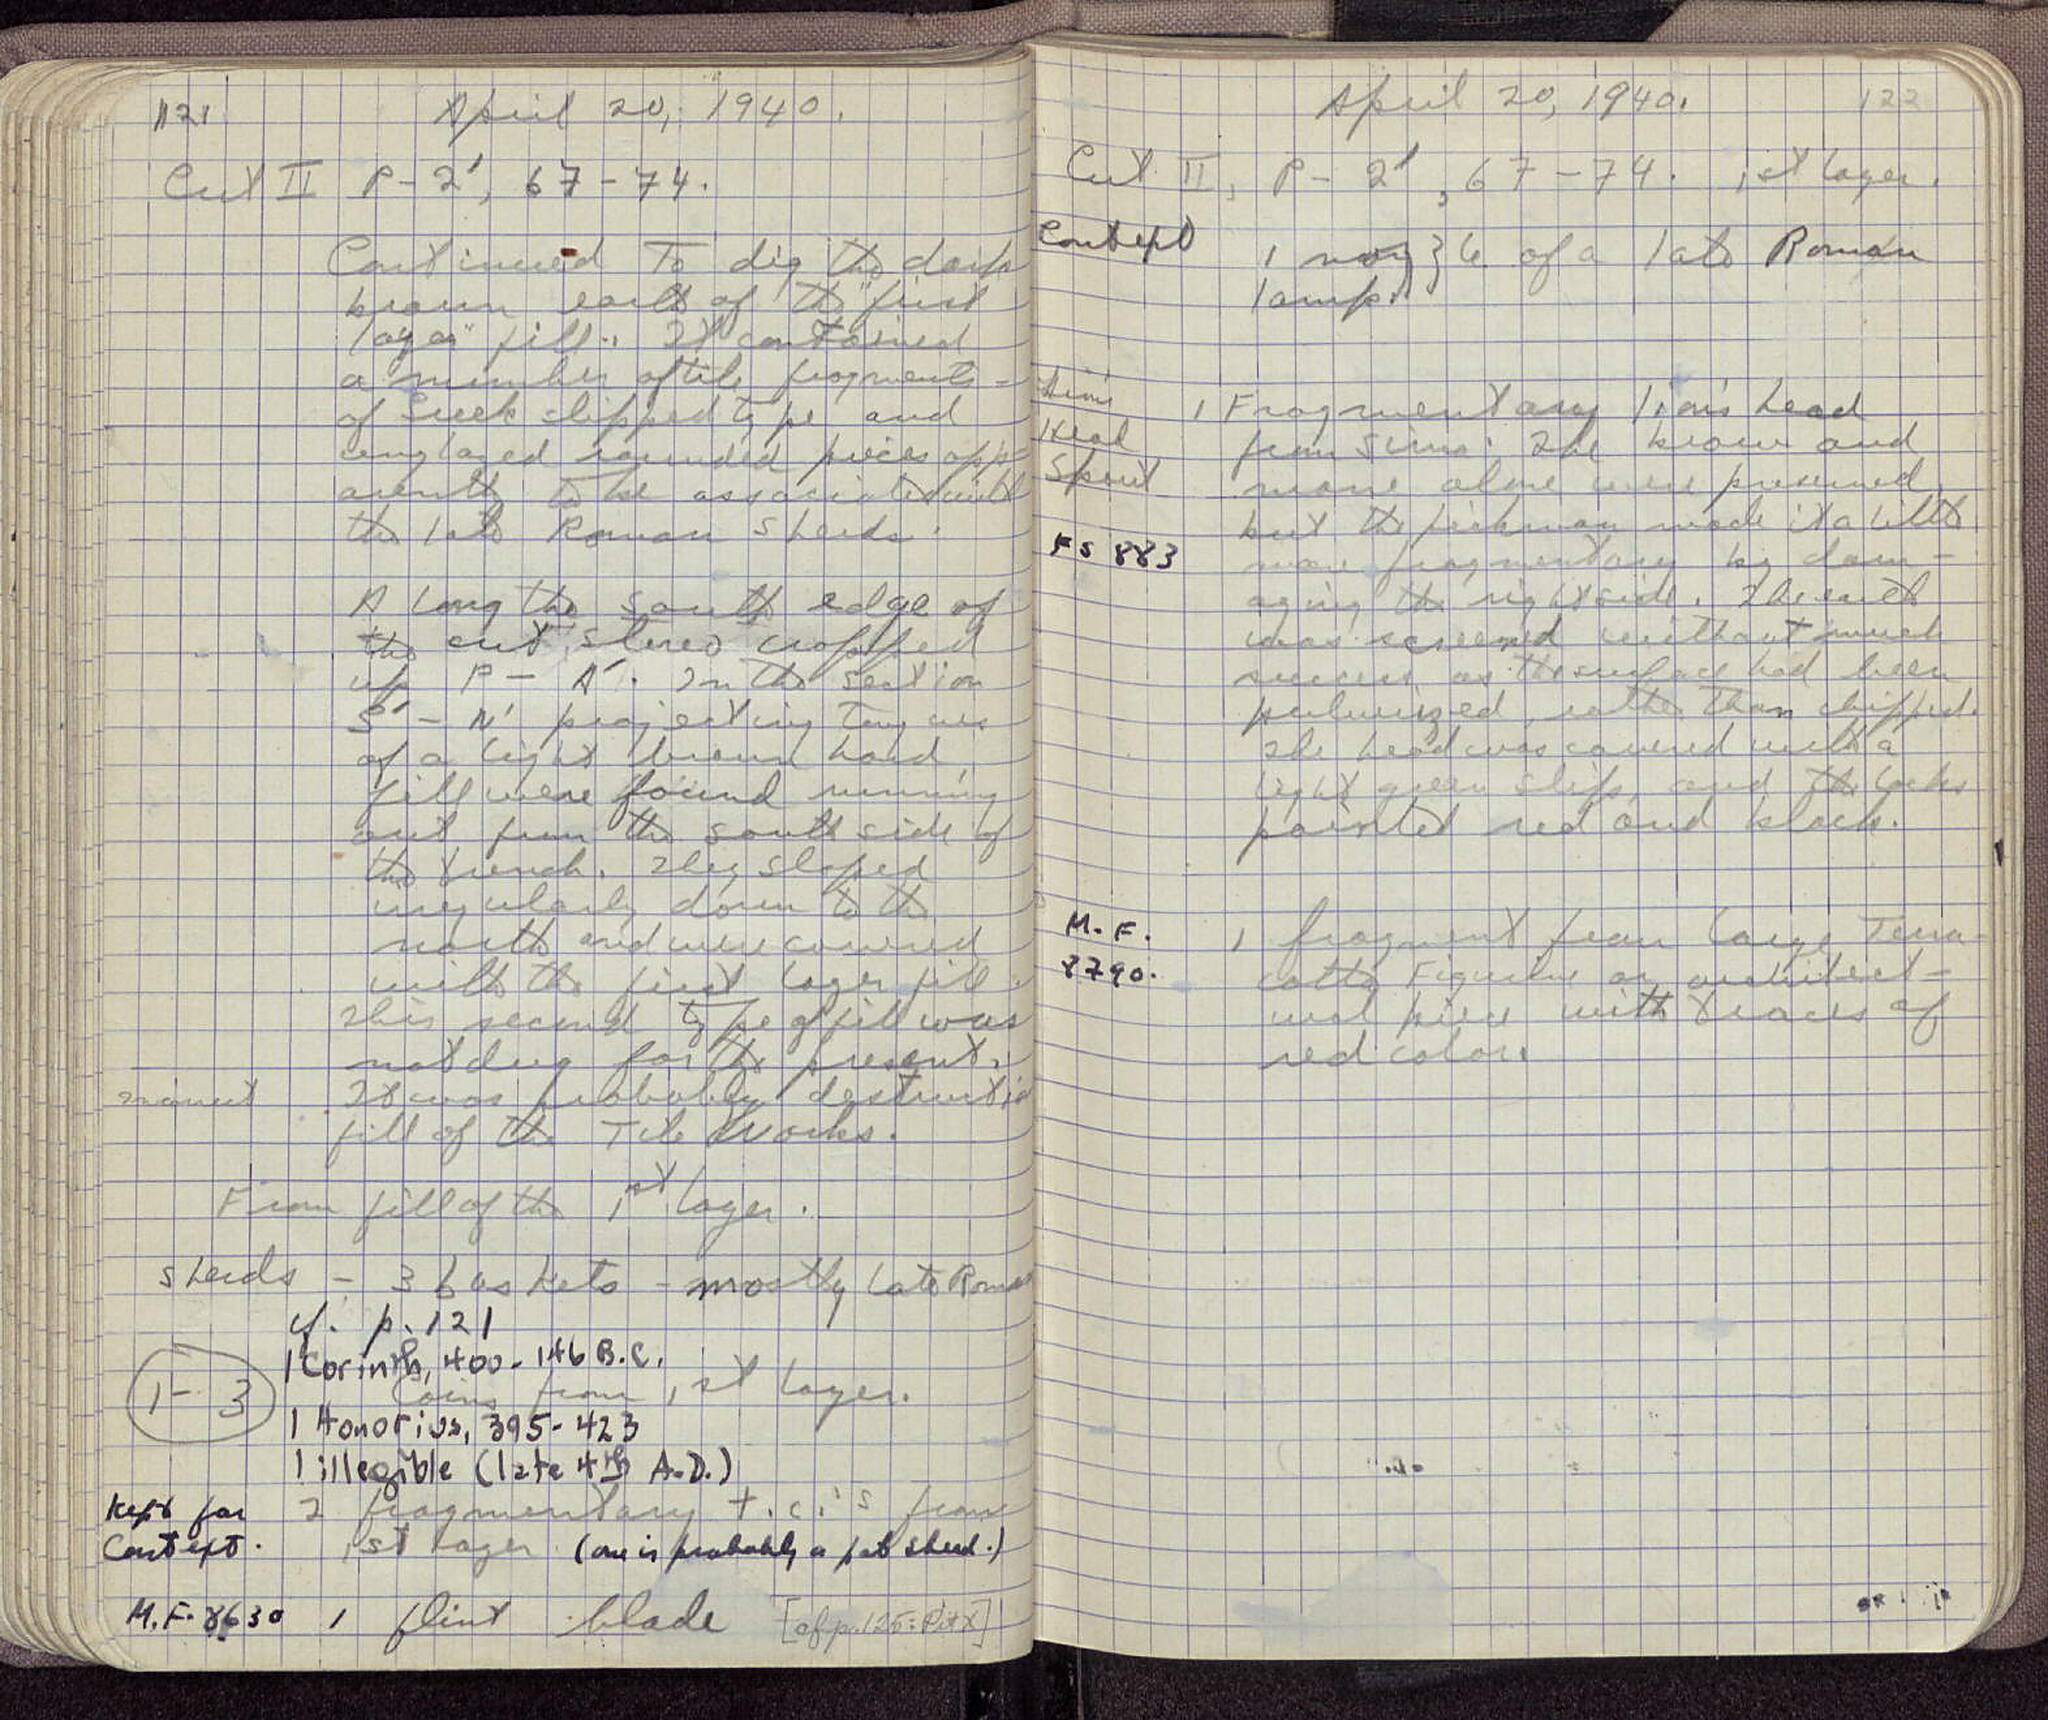 121
April 20, 1940.
Cut II P-2', 67-74.
Continued to dig the dark
brown earth of the "first
layer" fill. It contained
a number of tile fragments -
of Greek slipped type and
unglazed rounded pieces app-
arently to be associated with
the late Roman sherds.
Along the south edge of
the cut stereo cropped
up P - A'. In the section
S' - N' projecting tongues
of a light brown hard
fill were found running
out from the south side of
the trench. They sloped
irregularly down to the
north and were covered
with the first layer fill.
This second type of fill was
not dug for the present.
It was probably destruction
fill of the Tile Works.
From fill of the 1st layer.
sherds - 3 baskets - mostly late Roman
cf. p. 121
1 Corinth, 400-146 B.C.
1-3 Coins from 1st layer.
1 Honorius, 395-423
1 illegible (late 4th A.D.)
Kept for 2 fragmentary t.c.'s from
Context. 1st layer (one is probably a pot sherd.)
M.F. 8630 1 flint blade [cf p. 125: Pit X]
April 20, 1940. 122
Cut II, P - 2', 67-74. 1st layer.
Context 1 of a late Roman
lamp.
1 Fragmentary lion's head
Head from sima. The brow and
Spout mane alone were preserved
but the pickman made it a little
FS 883 more fragmentary by dam-
aging the right side. The earth
was screened without much
success as the surface had been
pulverized, rather than chipped.
The head was covered with a
light green slip, and the locks
painted red and black.
M.F. 1 fragment from large Terra-
8790. cotta Figurine or architect-
ural piece with traces of
red color.